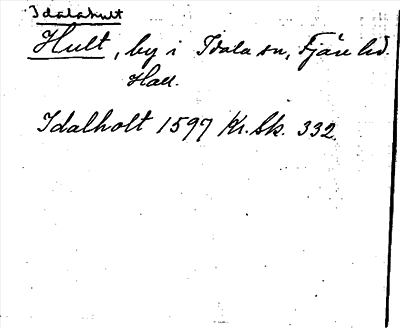 Idalahult
Hult, by i Idala sn, Fjäre hd.
Hall.
Idalholt 1597 Kr. Sk. 332.